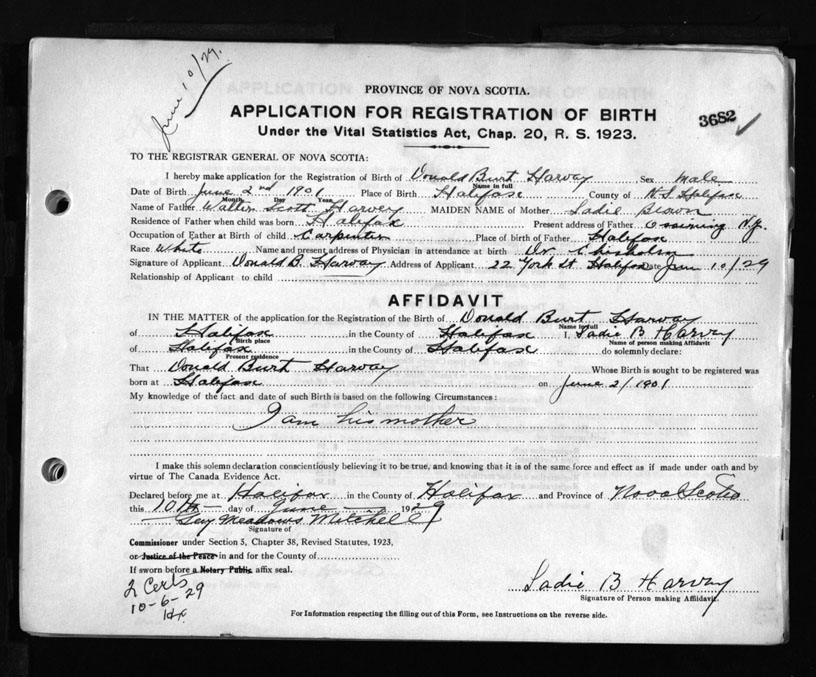 June 10/29.
PROVINCE OF NOVA SCOTIA.
APPLICATION FOR REGISTRATION OF BIRTH
3682
Under the Vital Statistics Act, Chap. 20, R. S. 1923.
TO THE REGISTRAR GENERAL OF NOVA SCOTIA:
I hereby make application for the Registration of Birth of Donald Burt Harvey Sex Male
Name in full
Date of Birth June 2nd 1901 Place of Birth Halifax County of N.S Halifax
Month Day Year
Name of Father Walter Scott Harvey MAIDEN NAME of Mother Sadie Brown
Residence of Father when child was born Halifax Present address of Father Ossining N.Y.
Occupation of Father at Birth of child Carpenter Place of birth of Father Halifax
Race White Name and present address of Physician in attendance at birth Dr Chisholm
Signature of Applicant Donald B. Harvey Address of Applicant 22 York St Halifax Date June 10/29
Relationship of Applicant to child
AFFIDAVIT
IN THE MATTER of the application for the Registration of the Birth of Donald Burt Harvey
Name in full
of Halifax in the County of Halifax I, Sadie B Harvey
Birth place Name of person making Affidavit
of Halifax in the County of Halifax do solemnly declare:
Present residence
That Donald Burt Harvey Whose Birth is sought to be registered was
born at Halifax on June 2/1901
My knowledge of the fact and date of such Birth is based on the following Circumstances:
I am his mother
I make this solemn declaration conscientiously believing it to be true, and knowing that it is of the same force and effect as if made under oath and by
virtue of The Canada Evidence Act.
Declared before me at Halifax in the County of Halifax and Province of Nova Scotia
this 10th day of June 1929
Guy Meadows Mitchell
Signature of
Commissioner under Section 5, Chapter 38, Revised Statutes, 1923,
or Justice of the Peace in and for the County of
If sworn before a Notary Public affix seal.
2 Certs
10-6-29
Sadie B Harvey
Signature of Person making Affidavit.
For Information respecting the filling out of this Form, see Instructions on the reverse side.